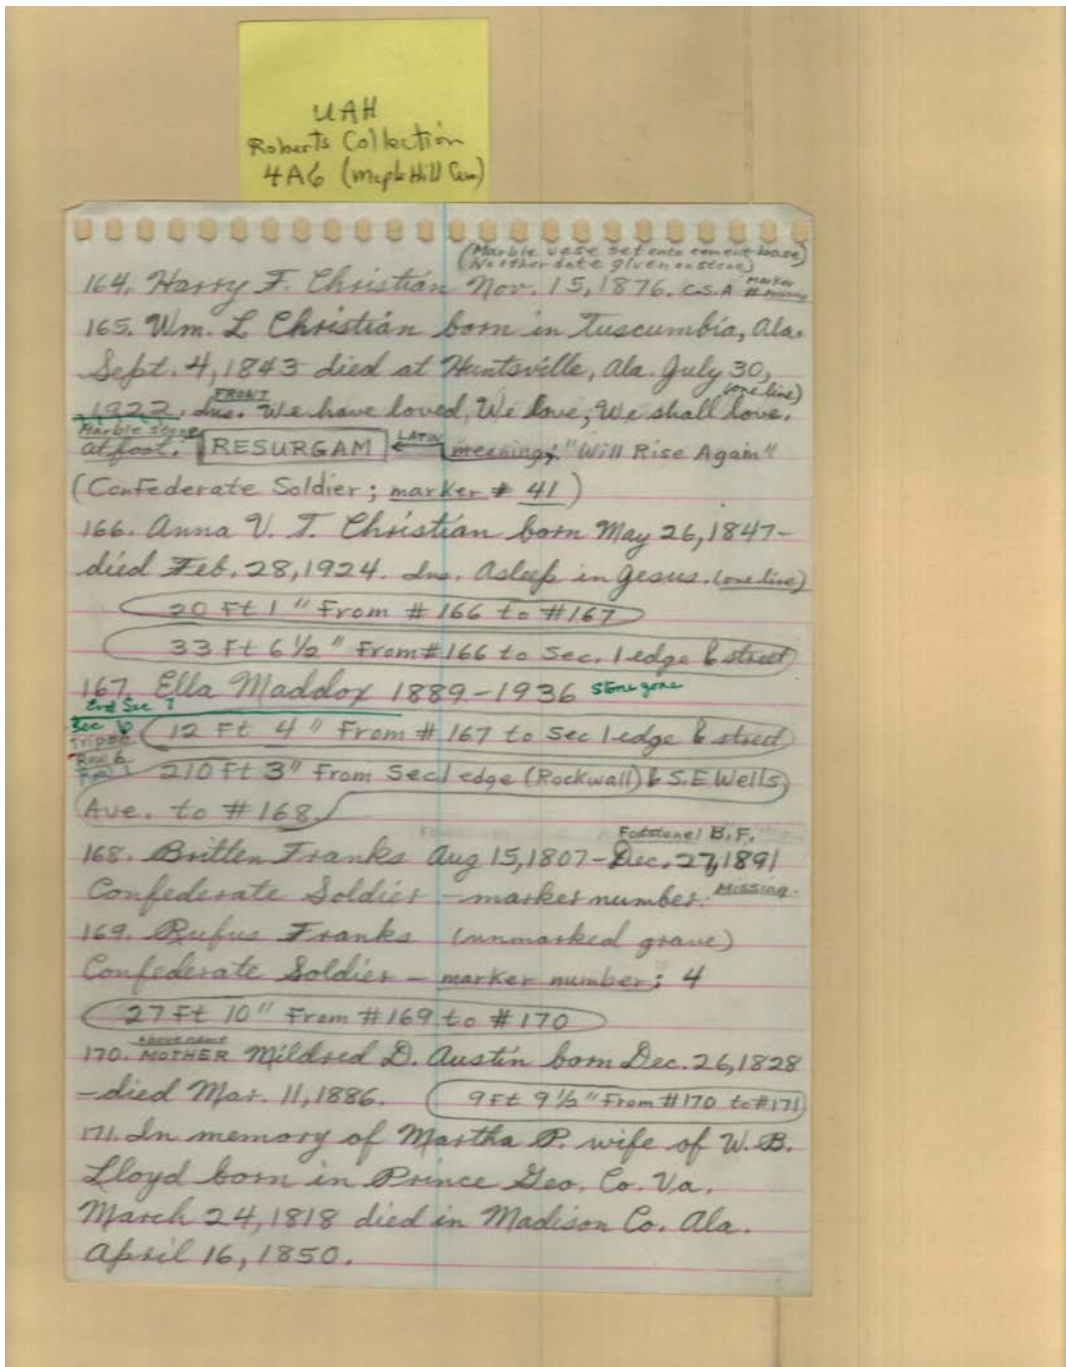 UAH
Roberts Collection
4A6 (Maple Hill Cem)
(Marble vase set onto cement base)
(No other date given on stone)
164. Harry F. Christian Nov. 15, 1876. C.S.A Marker # missing
165. Wm. L Christian born in Tuscumbia, Ala.
Sept. 4, 1843 died at Huntsville, Ala. July 30,
(one line)
1922. FRONT Ins. We have loved, We love, We shall love.
Marble stone
at foot. RESURGAM LATIN meaning; "Will Rise Again"
(Confederate Soldier; marker # 41)
166. Anna V. T. Christian born May 26, 1847-
died Feb. 28, 1924. Ins. Asleep in Jesus. (one line)
20 Ft 1" From #166 to #167
33 Ft 6 1/2" From #166 to Sec. 1 edge & street
167. Ella Maddox 1889-1936 stone gone
End Sec 7
Sec 6
Tripod 12 Ft 4" From # 167 to Sec 1 edge & street
Row 6
210 Ft 3" From Sec 1 edge (Rockwall) & S.E Wells
Ave. to #168
Footstone! B.F.
168. Britten Franks Aug 15, 1807-Dec. 27, 1891
Confederate Soldier - marker number: Missing.
169. Rufus Franks (unmarked grave)
Confederate Soldier - marker number; 4
27 Ft 10" From #169 to #170
above name
170. MOTHER Mildred D. Austin born Dec. 26, 1828
-died Mar. 11, 1886. 9 Ft 9 1/2" From #170 to #171
171. In memory of Martha P. wife of W. B.
Lloyd born in Prince Geo. Co. Va.
March 24, 1818 died in Madison Co. Ala.
April 16, 1850.